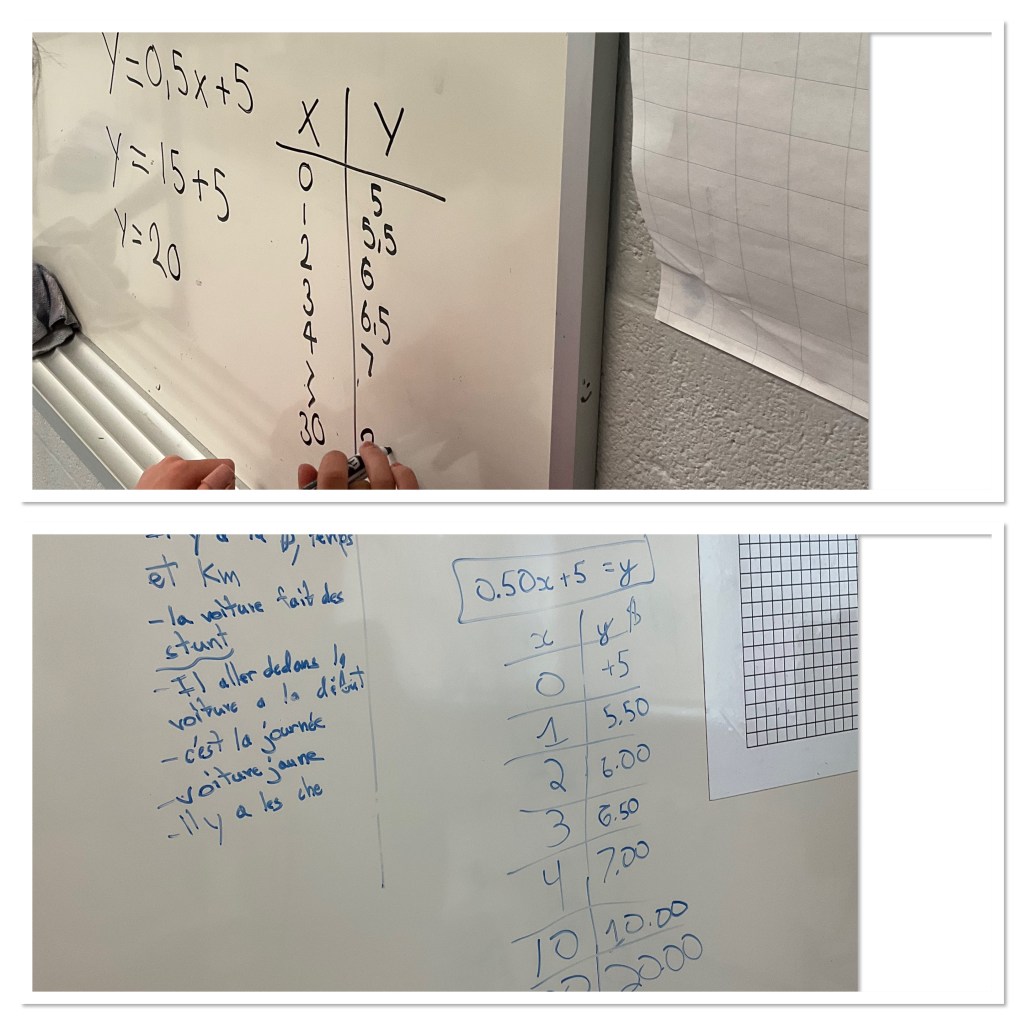 y=0,5x+5
y=15+5
y=20
x y
0 5
1 5,5
2 6
3 6,5
4 7
30
et Km
- la voiture fait des
stunt
- Il aller dedans la
voiture a la début
- c'est la journée
- voiture jaune
- Il y a les che
0.50x+5=y
x y $
0 +5
1 5.50
2 6.00
3 6.50
4 7.00
10 10.00
20.00